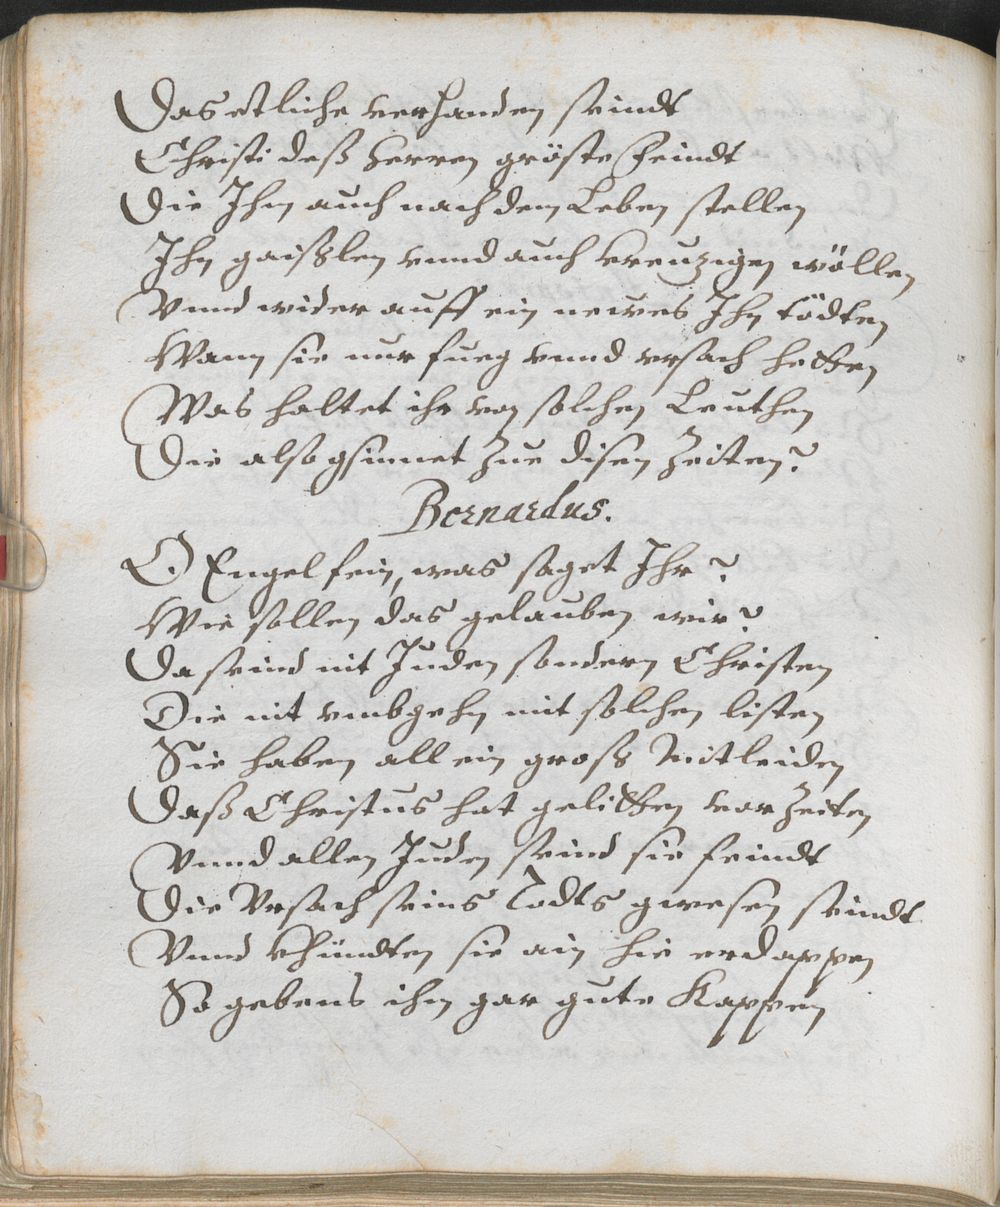 Das etliche verhanden seindt
Christi deß Herren gröste Feindt
Die Ihm auch nach dem Leben stellen
Ihn gaißlen vnnd auch kreuzigen wöllen
Vnnd wider auff ein newes Ihn tödten
Wann sie nur fueg vnnd vrsach hetten
Was haltet ihr von solchen Leuthen
Die also gsinnet zue disen Zeiten?
Bernardus.
O Engel fein, was saget Ihr?
Wie sollen das gelauben wir?
Da seind nit Juden sondern Christen
Die nit vmbgehn mit solchen listen
Sie haben all ein groß Mitleiden
Daß Christus hat gelitten vor Zeiten
Vnnd allen Juden seind sie feindt
Die Vrsach seins Todts gwesen seindt
Vnnd khündten sie ain hie erdappen
So gebens ihm gar gute Kappen